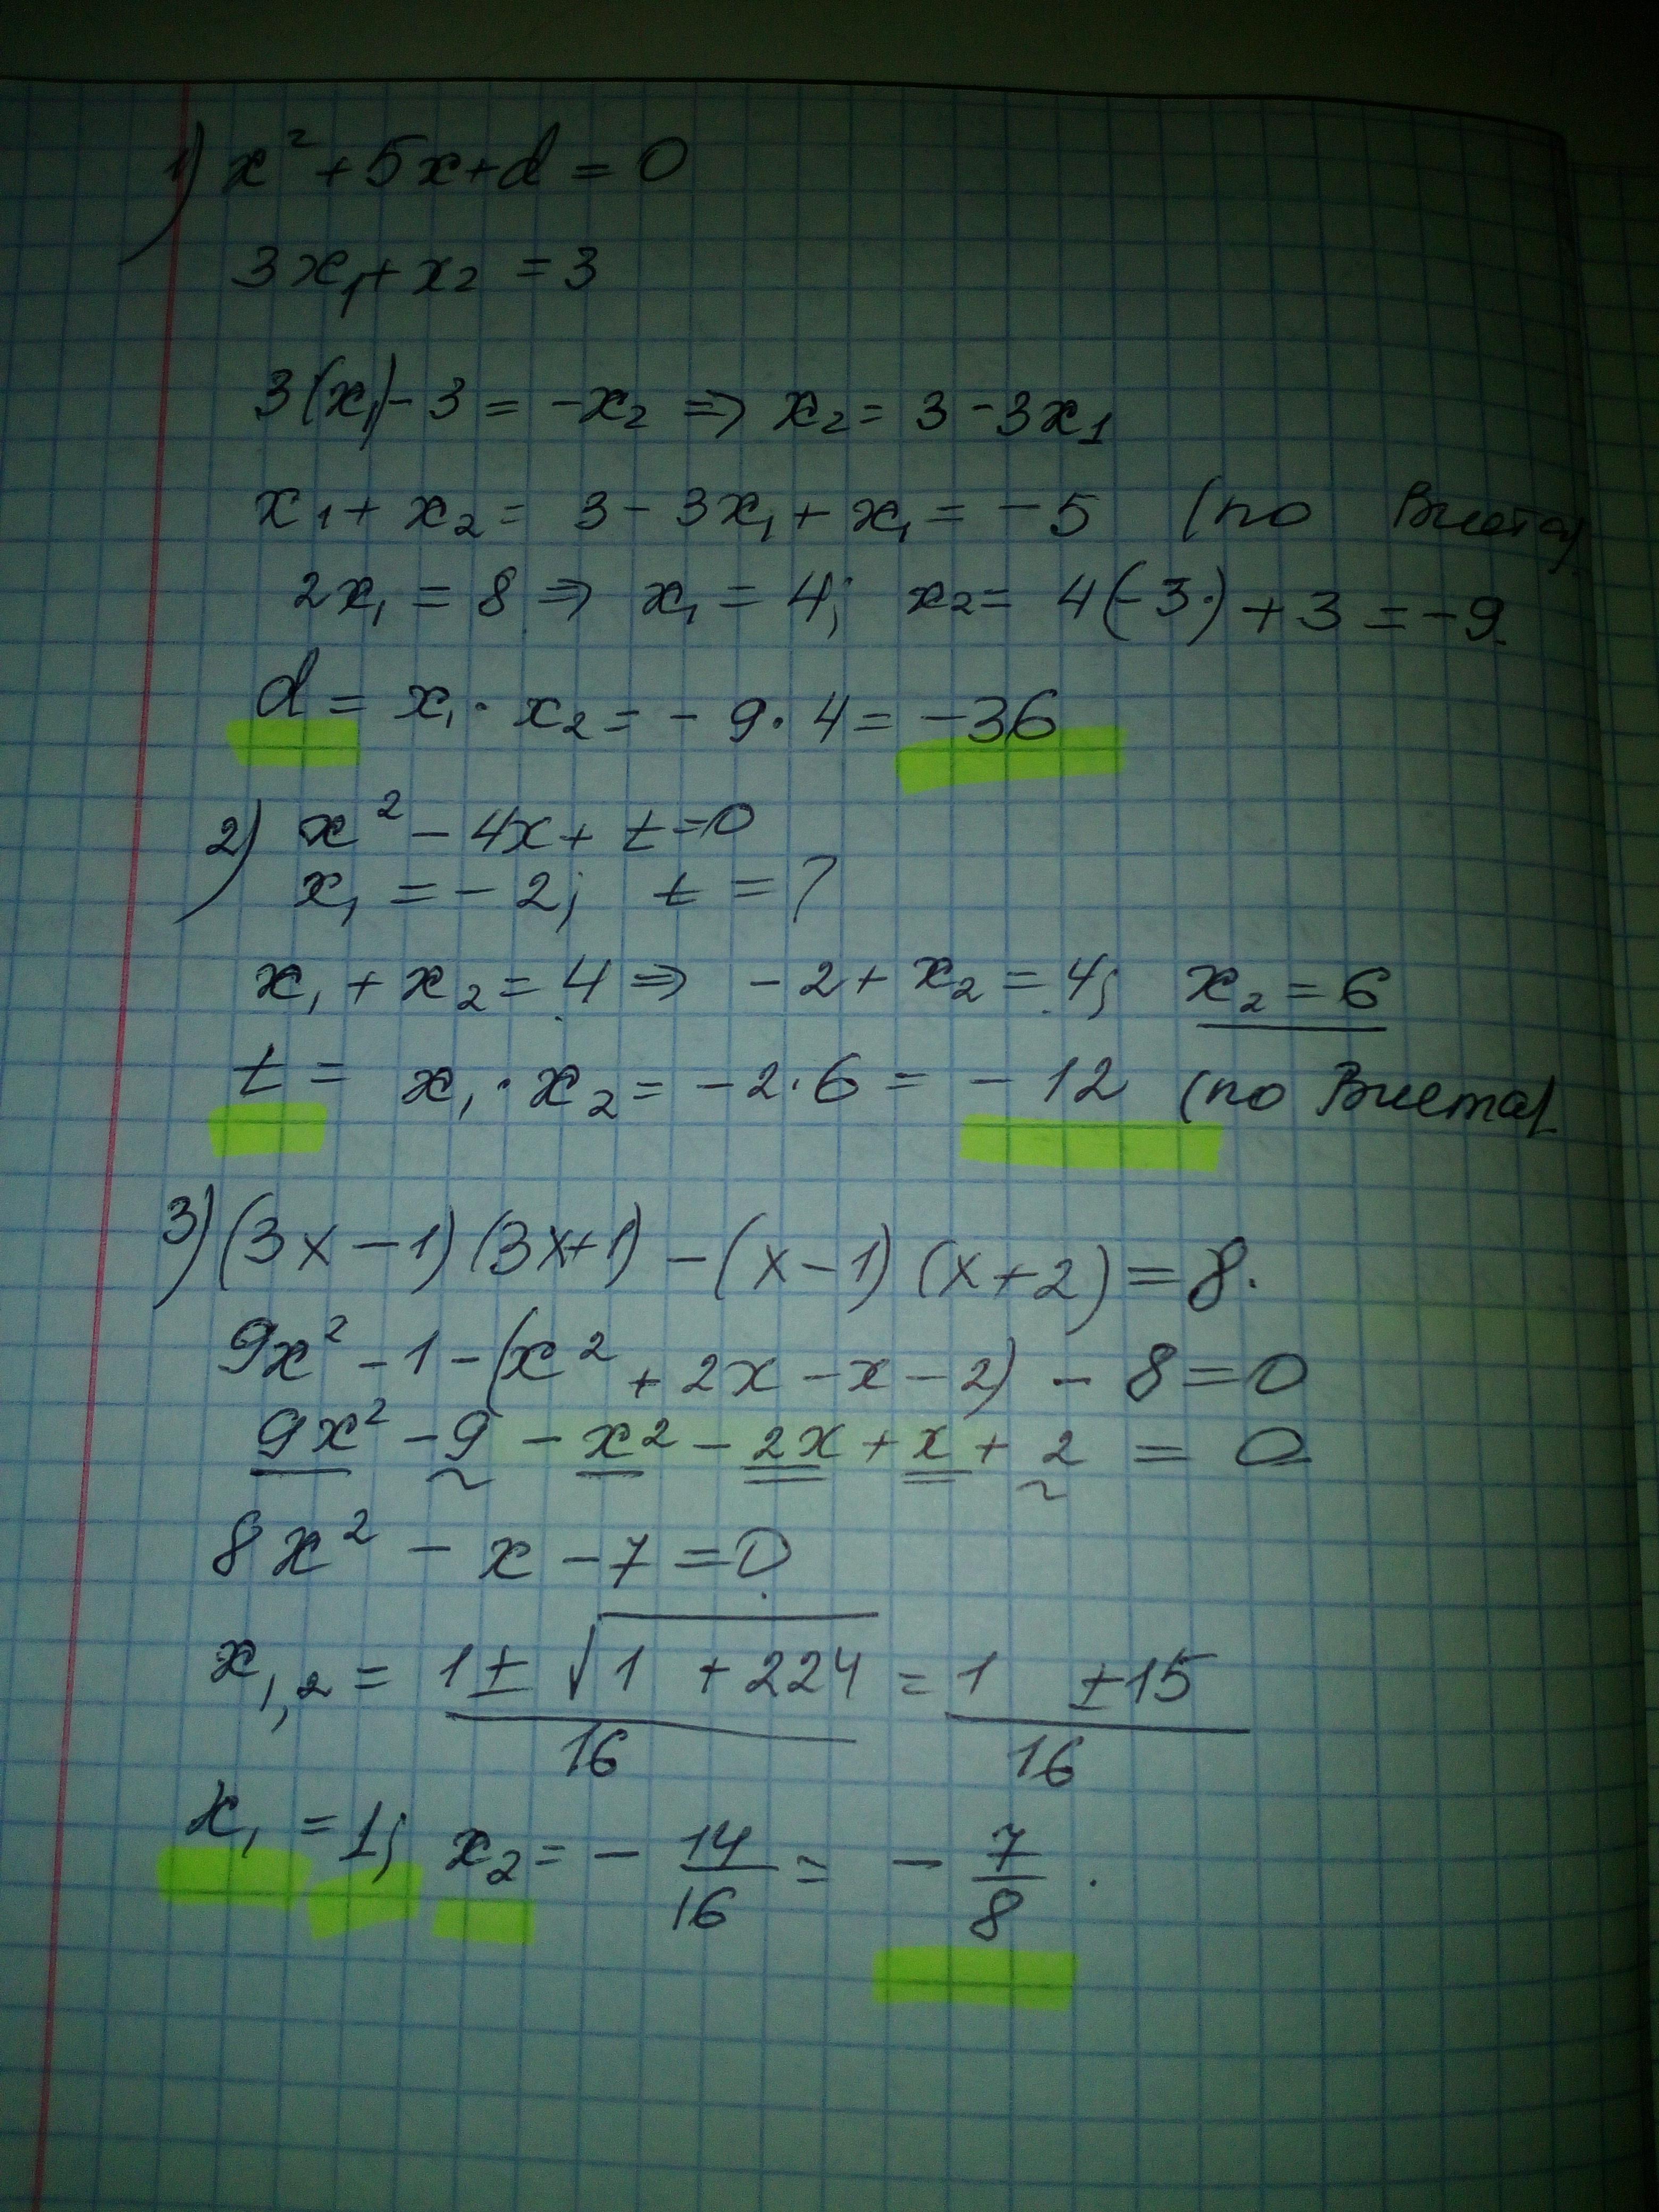 1) x² + 5x + d = 0
3x₁ + x₂ = 3
3(x₁) - 3 = -x₂ ⇒ x₂ = 3 - 3x₁
x₁ + x₂ = 3 - 3x₁ + x₁ = -5 (по Виета)
2x₁ = 8 ⇒ x₁ = 4; x₂ = 4(-3) + 3 = -9
d = x₁ · x₂ = - 9 · 4 = -36
2) x² - 4x + t = 0
x₁ = - 2; t = ?
x₁ + x₂ = 4 ⇒ -2 + x₂ = 4; x₂ = 6
t = x₁ · x₂ = -2 · 6 = - 12 (по Виета)
3) (3x - 1)(3x + 1) - (x - 1)(x + 2) = 8.
9x² - 1 - (x² + 2x - x - 2) - 8 = 0
9x² - 9 - x² - 2x + x + 2 = 0
8x² - x - 7 = 0
x₁,₂ = (1 ± √(1 + 224))/16 = (1 ± 15)/16
x₁ = 1; x₂ = - 14/16 = - 7/8.